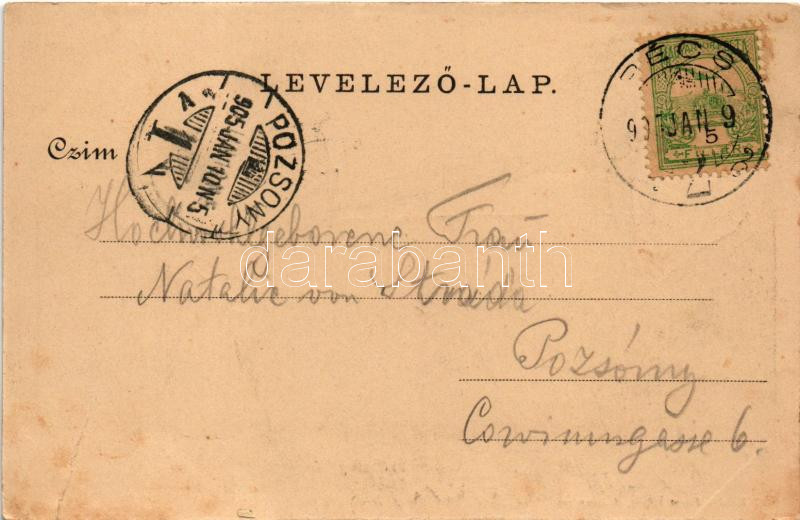 LEVELEZŐ-LAP.
Czim
POZSONY
905 JAN 10 N 5
PÉCS
905 JAN 9
5
Hochwohlgeborene Frau
Natalie von Stráda
Pozsóny
Corvinusgasse 6.
darabanth